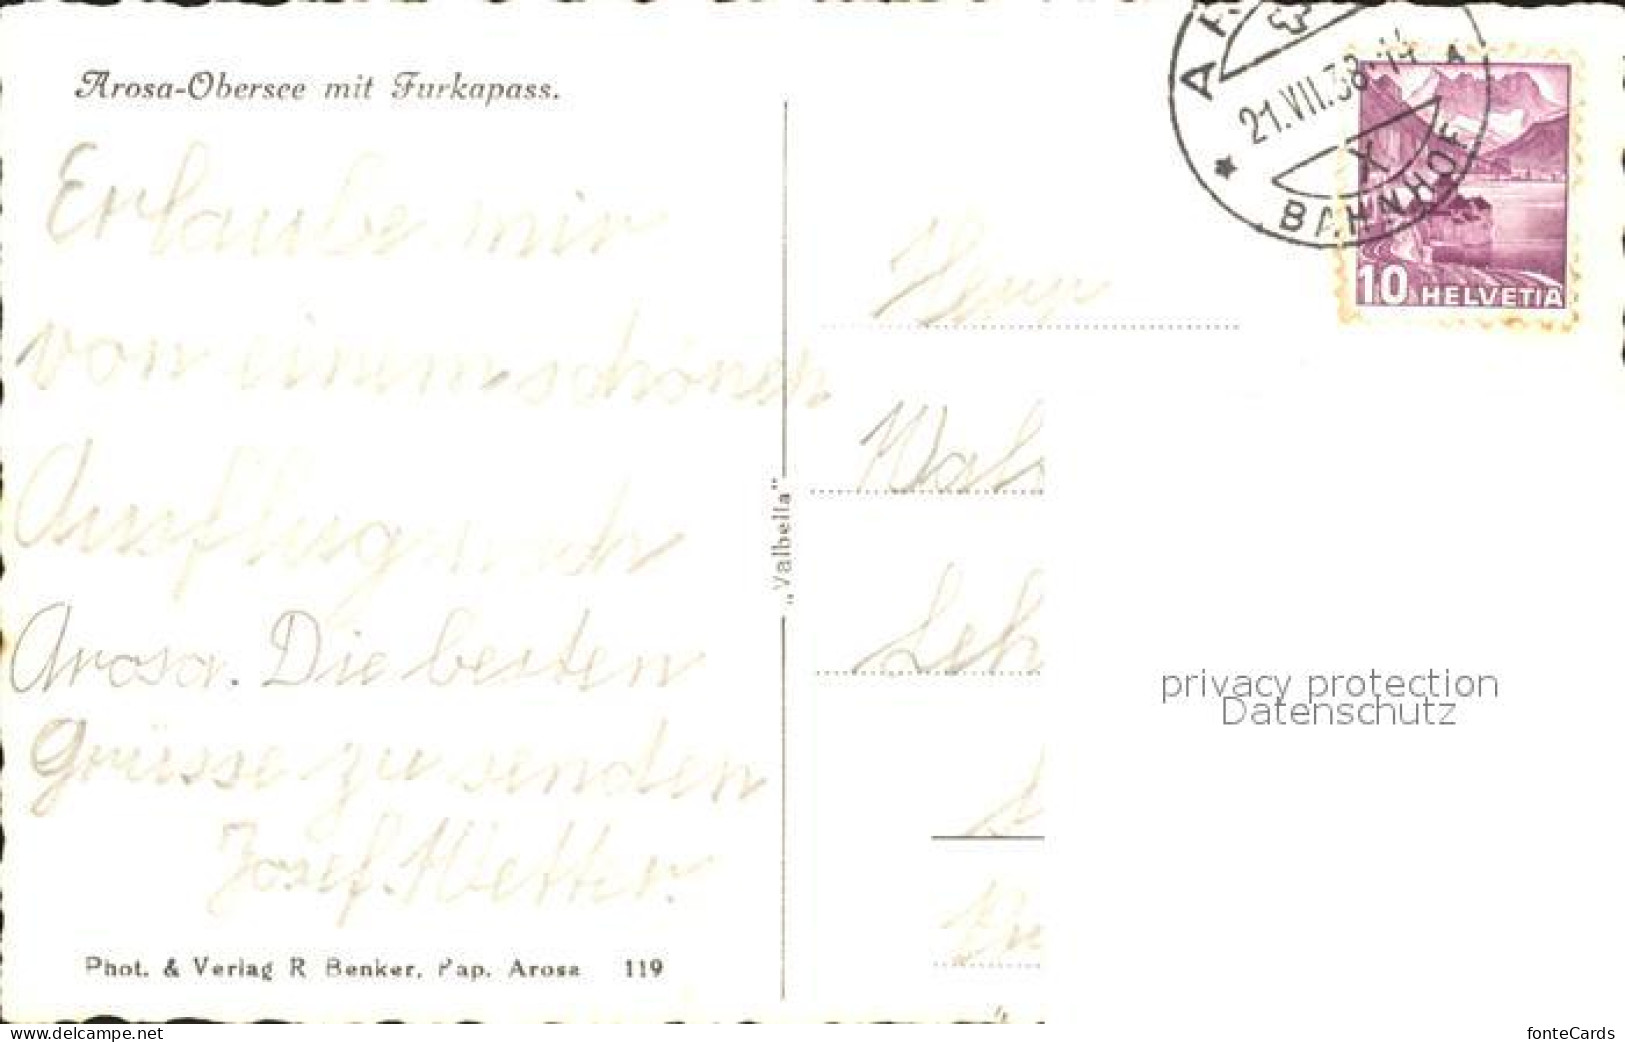 Arosa-Obersee mit Furkapass.
Erlaube mir
von einem schönen
Ausflug nach
Arosa. Die besten
Grüsse zu senden
Josef Wetter.
Phot. & Verlag R Benker, Pap. Arosa 119
„Valbella"
Herrn
21.VII.38-14
BAHNHOF
10 HELVETIA
privacy protection
Datenschutz
www.delcampe.net
fonteCards